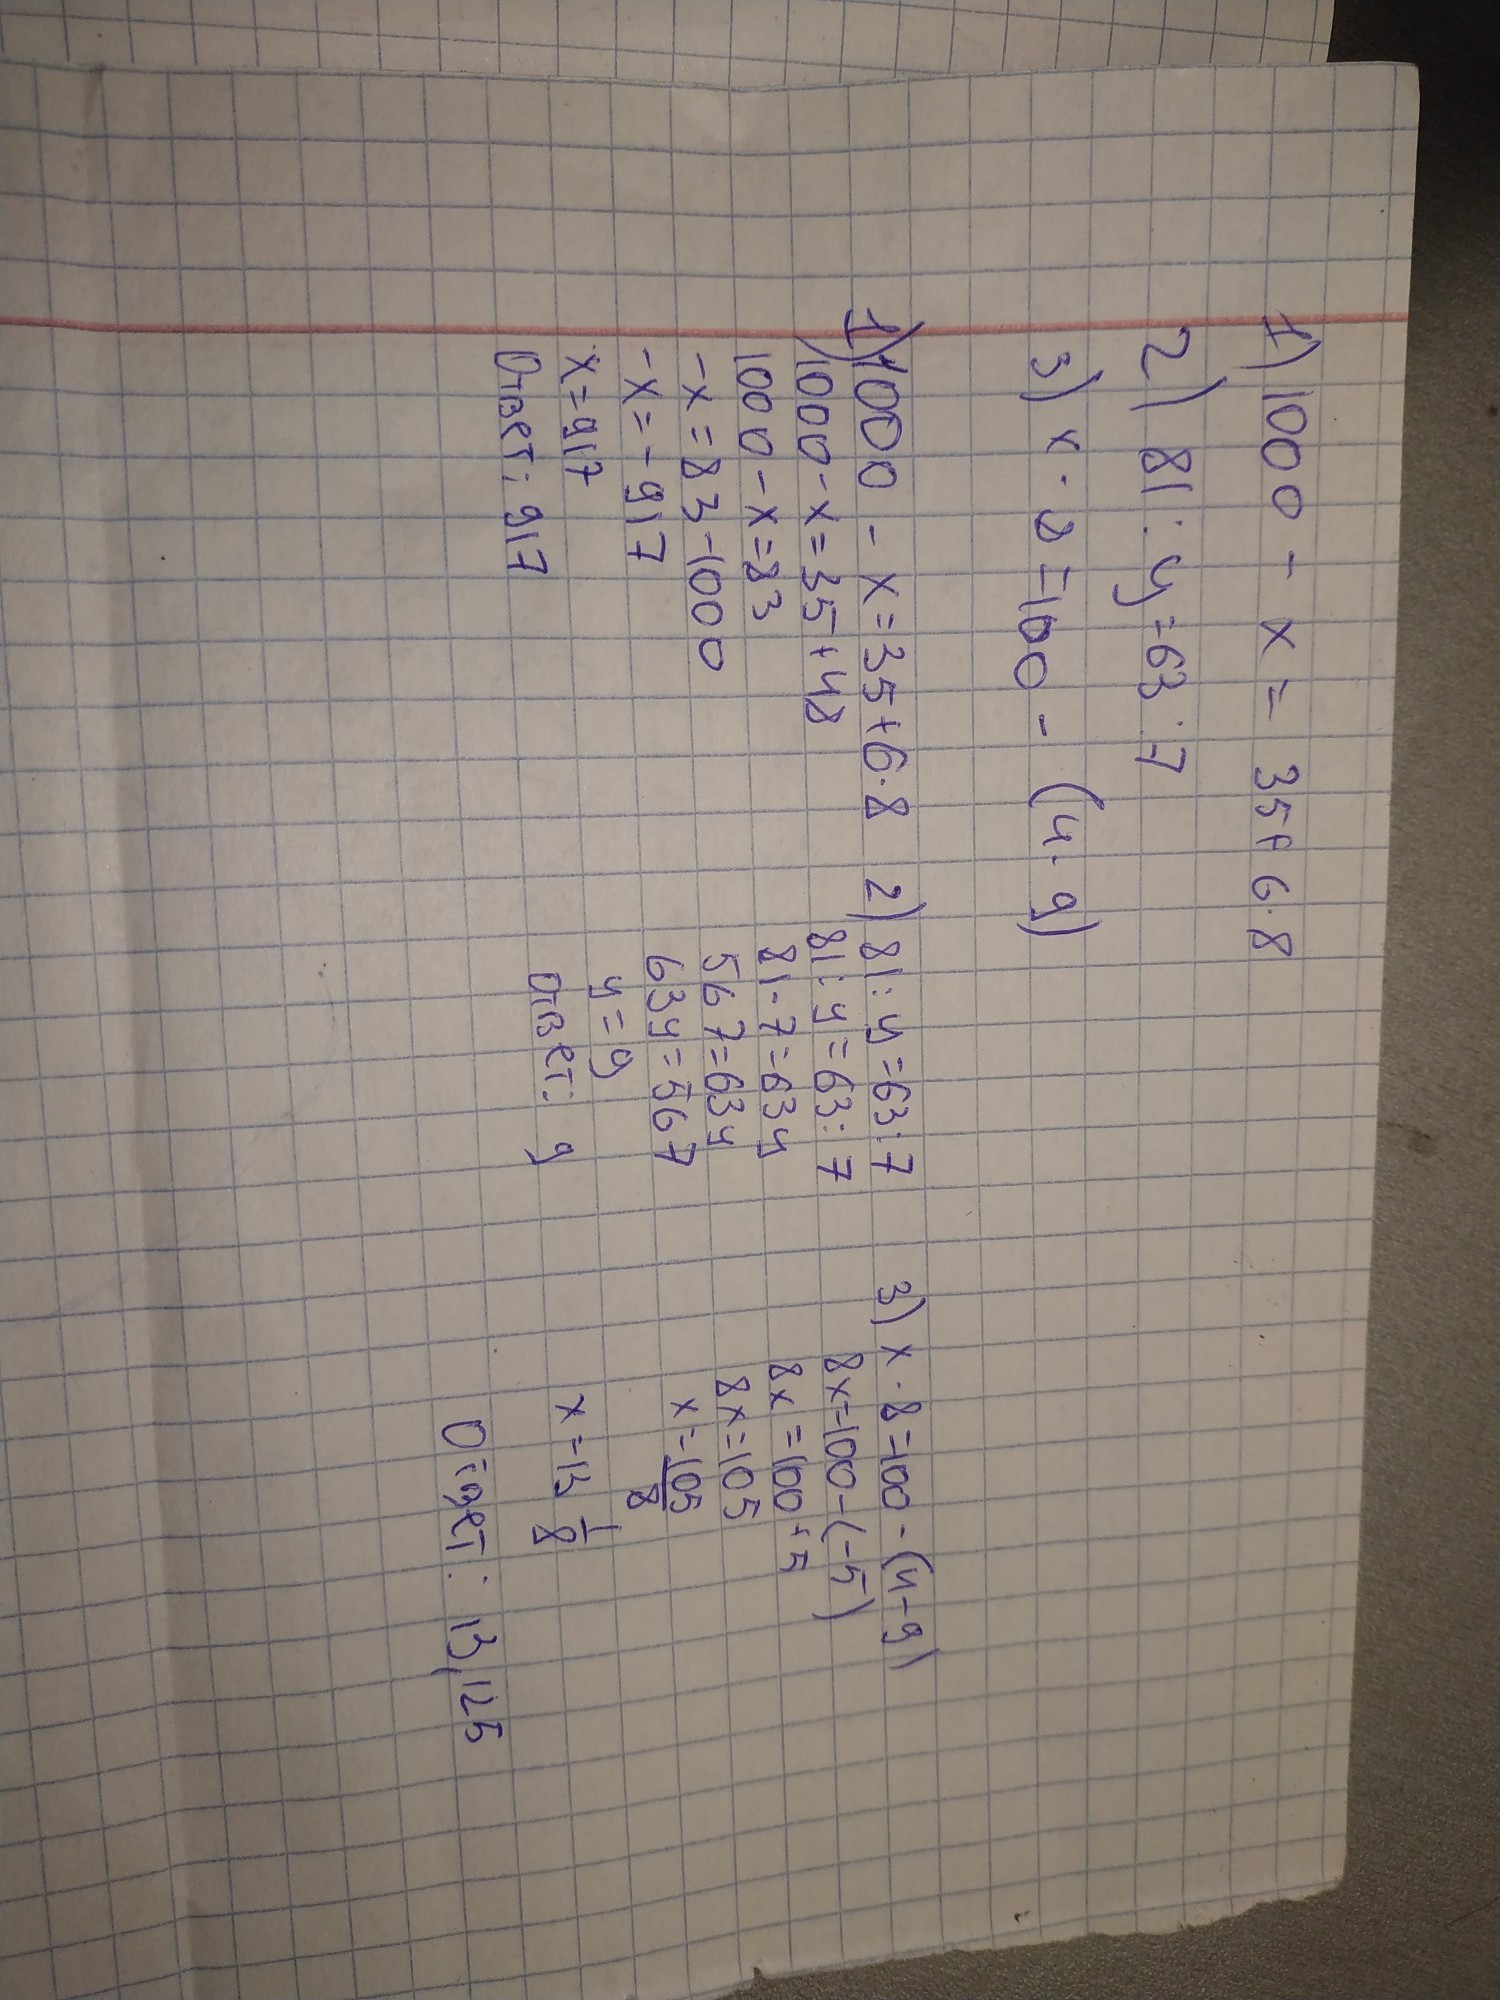 1) 1000 - x = 35 + 6 · 8
2) 81 : y = 63 : 7
3) x · 8 = 100 - (4 · 9)
1) 1000 - x = 35 + 6 · 8
1000 - x = 35 + 48
1000 - x = 83
-x = 83 - 1000
-x = -917
x = 917
Ответ: 917
2) 81 : y = 63 : 7
81 : y = 63 : 7
81 · 7 = 63y
567 = 63y
63y = 567
y = 9
Ответ: 9
3) x · 8 = 100 - (4 - 9)
8x = 100 - (-5)
8x = 100 + 5
8x = 105
x = 105/8
x = 13 1/8
Ответ: 13,125